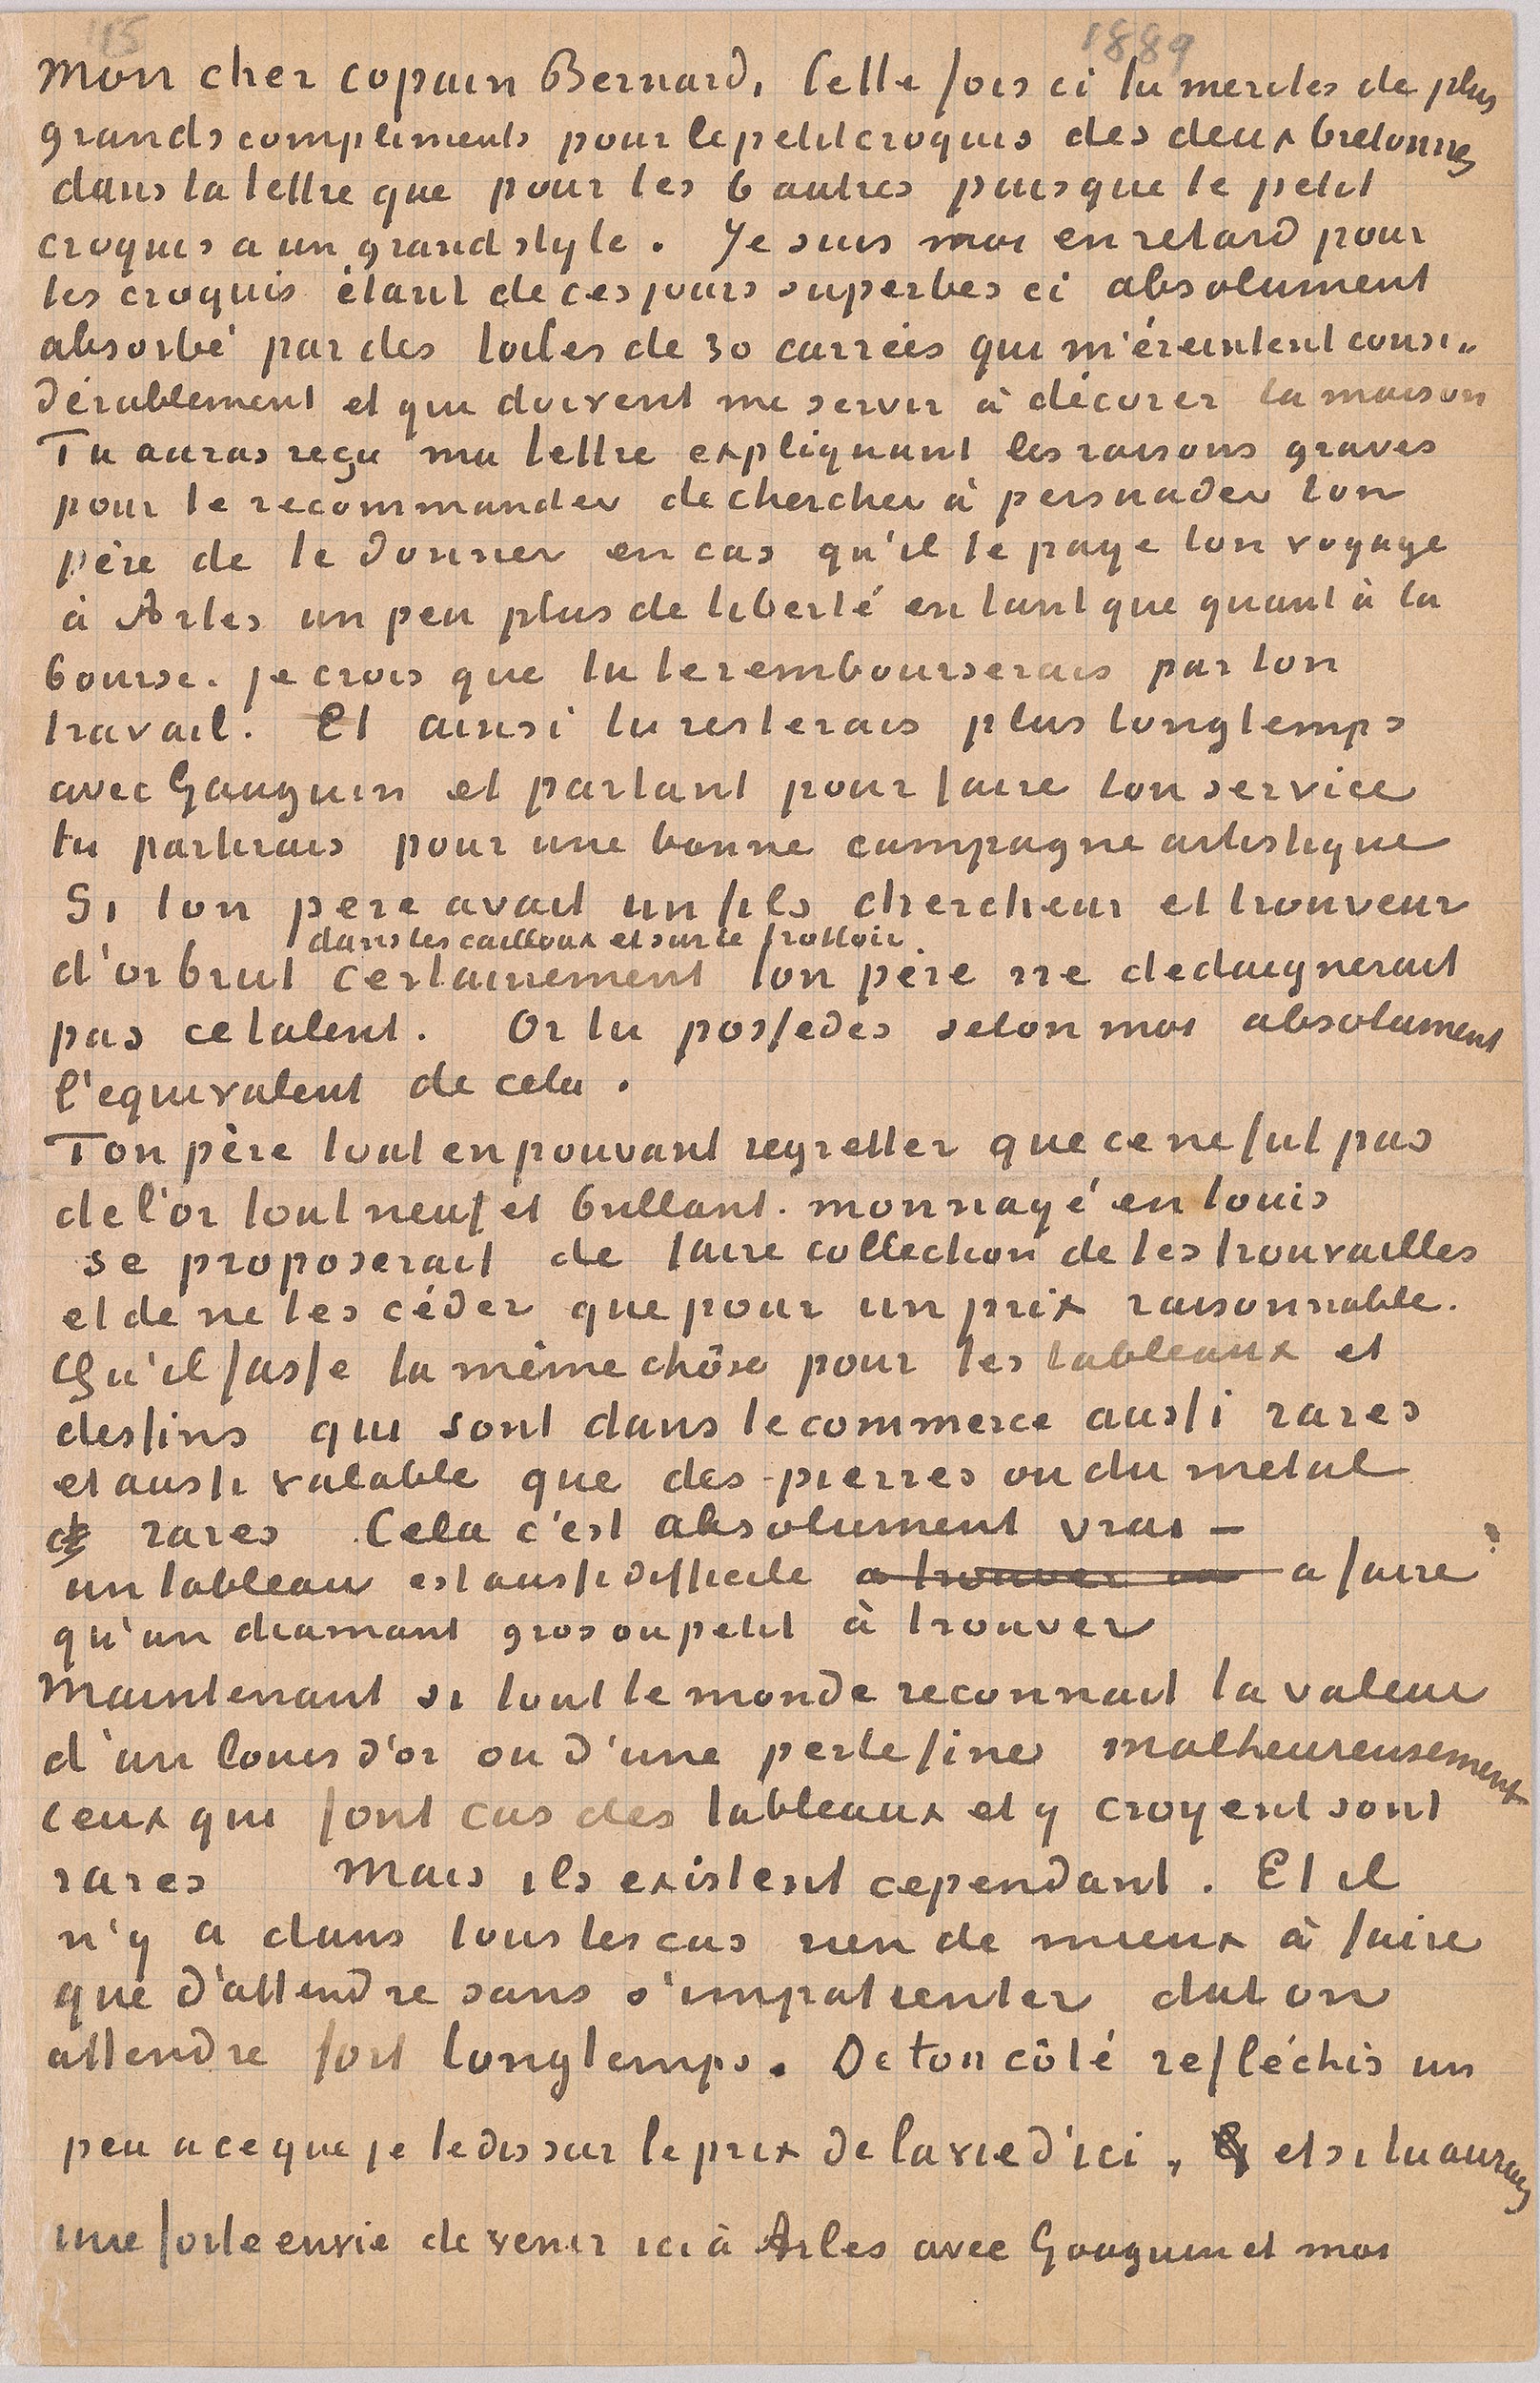 15 1889
Mon cher copain Bernard, Cette fois ci tu merites de plus
grands compliments pour le petit croquis des deux bretonnes
dans ta lettre que pour les 6 autres puisque le petit
croquis a un grand style. Je suis moi en retard pour
les croquis étant de ces jours superbes ci absolument
absorbé par des toiles de 30 carrées qui m'éreintent consi-
dérablement et qui doivent me servir à décorer la maison
Tu auras reçu ma lettre expliquant les raisons graves
pour te recommander de chercher à persuader ton
père de te donner en cas qu'il te paye ton voyage
à Arles un peu plus de liberté en tant que quant à la
bourse. je crois que tu le rembourserais par ton
travail. Et ainsi tu resterais plus longtemps
avec Gauguin et partant pour faire ton service
tu partirais pour une bonne campagne artistique
Si ton pere avait un fils chercheur et trouveur
dans les cailloux et sur le trottoir
d'or brut certainement ton père ne dedaignerait
pas ce talent. Or tu possedes selon moi absolument
l'equivalent de cela.
Ton père tout en pouvant regretter que ce ne fut pas
de l'or tout neuf et brillant. monnayé en louis
se proposerait de faire collection de tes trouvailles
et de ne les céder que pour un prix raisonnable.
Qu'il fasse la même chôse pour tes tableaux et
dessins qui sont dans le commerce aussi rares
et aussi valable que des pierres ou du metal
rares Cela c'est absolument vrai –
un tableau est aussi difficile a trouver a faire
qu'un diamant gros ou petit à trouver
Maintenant si tout le monde reconnait la valeur
d'un louis d'or ou d'une perle fine malheureusement
ceux qui font cas des tableaux et y croyent sont
rares Mais ils existent cependant. Et il
n'y a dans tous les cas rien de mieux à faire
que d'attendre sans s'impatienter dut on
attendre fort longtemps. De ton côté refléchis un
peu a ce que je te dis sur le prix de la vie d'ici, et si tu aurais
une forte envie de venir ici à Arles avec Gauguin et moi